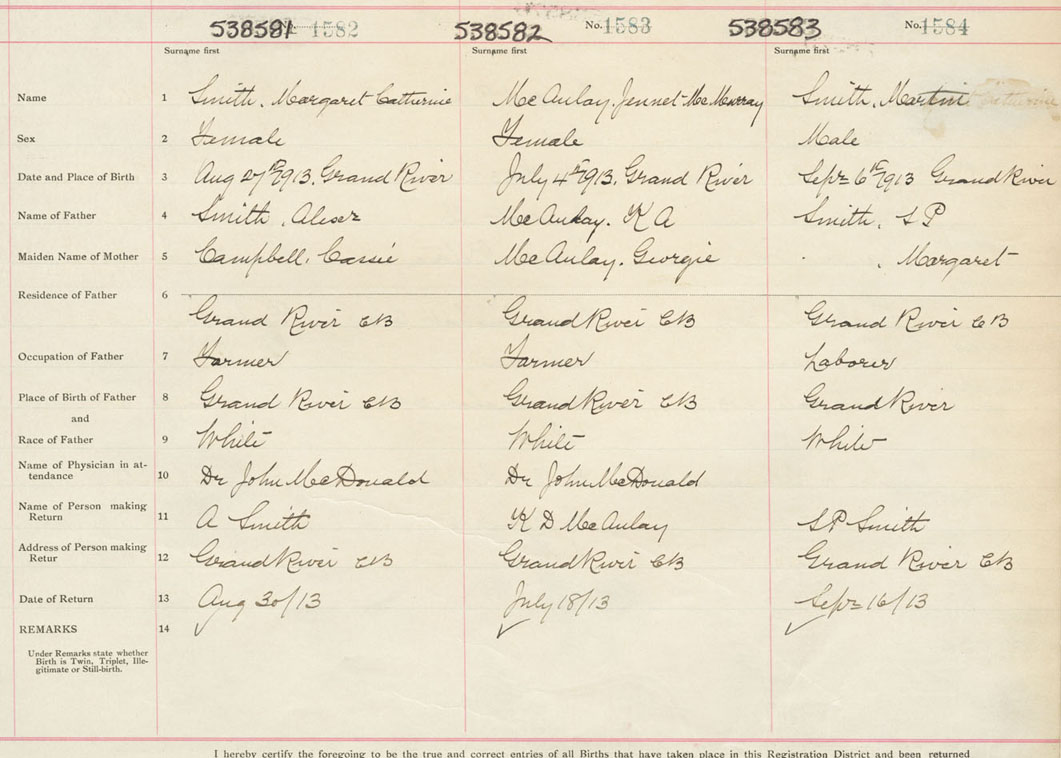 538581 No. 1582 538582 No. 1583 538583 No. 1584
Surname first Surname first Surname first
Name 1 Smith, Margaret Catherine McAulay, Jennet McMurray Smith, Martin
Sex 2 Female Female Male
Date and Place of Birth 3 Aug 27th 1913, Grand River July 4th 1913, Grand River Sept 6th 1913 Grand River
Name of Father 4 Smith, McAulay, K A Smith, S P
Maiden Name of Mother 5 Campbell, Cassie McAulay, Georgie , Margaret
Residence of Father 6
Grand River CB Grand River CB Grand River CB
Occupation of Father 7 Farmer Farmer Laborer
Place of Birth of Father 8 Grand River CB Grand River CB Grand River
and
Race of Father 9 White White White
Name of Physician in at-
tendance 10 Dr John McDonald Dr John McDonald
Name of Person making
Return 11 A Smith K D McAulay S P Smith
Address of Person making
Retur 12 Grand River CB Grand River CB Grand River CB
Date of Return 13 Aug 30/13 July 18/13 Sept 16/13
REMARKS 14
Under Remarks state whether
Birth is Twin, Triplet, Ille-
gitimate or Still-birth.
I hereby certify the foregoing to be the true and correct entries of all Births that have taken place in this Registration District and been returned